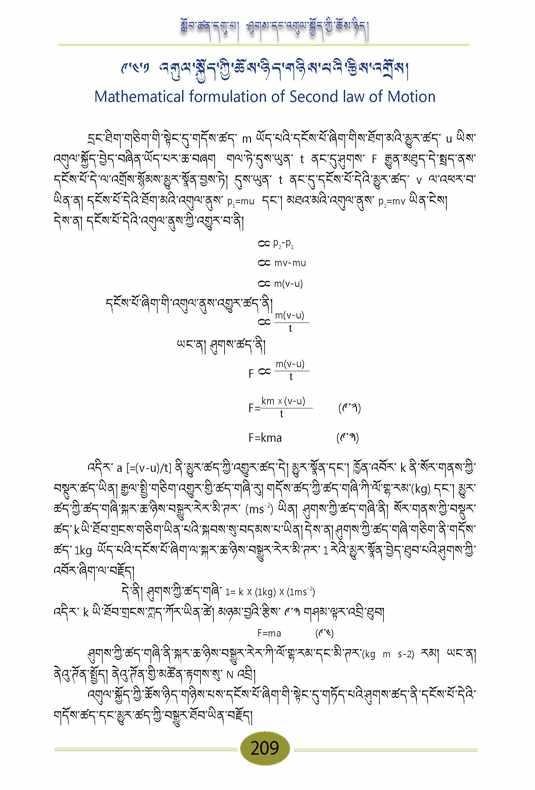 སློབ་ཚན་དགུ་པ། ཤུགས་དང་འགུལ་སྐྱོད་ཀྱི་ཆོས་ཉིད།
༩་༤་༡ འགུལ་སྐྱོད་ཀྱི་ཆོས་ཉིད་གཉིས་པའི་རྩིས་འགྲོས།
Mathematical formulation of Second law of Motion
དྲང་ཐིག་གཅིག་གི་སྟེང་དུ་གདོས་ཚད་ m ཡོད་པའི་དངོས་པོ་ཞིག་གིས་ཐོག་མའི་མྱུར་ཚད་ u ཡིས་
འགུལ་སྐྱོད་བྱེད་བཞིན་ཡོད་པར་ཆ་བཞག གལ་ཏེ་དུས་ཡུན་ t ནང་དུ་ཤུགས་ F རྒྱུན་མཐུད་དེ་སྤྲད་ནས་
དངོས་པོ་དེ་ལ་འགྲོས་སྙོམས་མྱུར་སྣོན་བྱས་ཏེ། དུས་ཡུན་ t ནང་དུ་དངོས་པོ་དེའི་མྱུར་ཚད་ v ལ་འཕར་བ་
ཡིན་ན། དངོས་པོ་དེའི་ཐོག་མའི་འགུལ་ནུས་ p₁=mu དང་། མཐའ་མའི་འགུལ་ནུས་ p₂=mv ཡིན་ངེས།
དེས་ན། དངོས་པོ་དེའི་འགུལ་ནུས་ཀྱི་འགྱུར་བ་ནི།
∝ p₂-p₁
∝ mv-mu
∝ m(v-u)
དངོས་པོ་ཞིག་གི་འགུལ་ནུས་འགྱུར་ཚད་ནི།
∝ m(v-u)
t
ཡང་ན། ཤུགས་ཚད་ནི།
F ∝ m(v-u)
t
F= km x (v-u) (༩་༢)
t
F=kma (༩་༣)
འདིར་ a [=(v-u)/t] ནི་མྱུར་ཚད་ཀྱི་འགྱུར་ཚད་དེ། མྱུར་སྣོན་དང་། ཁྱོན་འབོར་ k ནི་སོར་གནས་ཀྱི་
བསྡུར་ཚད་ཡིན། རྒྱལ་སྤྱིའི་གཅིག་འགྱུར་གྱི་ཚད་གཞི་རུ། གདོས་ཚད་ཀྱི་ཚད་གཞི་ཀི་ལོ་གྷ་རམ་(kg) དང་། མྱུར་
ཚད་ཀྱི་ཚད་གཞི་སྐར་ཆ་ཉིས་བསྒྱུར་རེར་མི་ཊར་ (ms⁻²) ཡིན། ཤུགས་ཀྱི་ཚད་གཞི་ནི། སོར་གནས་ཀྱི་བསྡུར་
ཚད་ k ཡི་ཐོབ་གྲངས་གཅིག་ཡིན་པའི་སྐབས་སུ་བདམས་པ་ཡིན། དེས་ན། ཤུགས་ཀྱི་ཚད་གཞི་གཅིག་ནི་གདོས་
ཚད་ 1kg ཡོད་པའི་དངོས་པོ་ཞིག་ལ་སྐར་ཆ་ཉིས་བསྒྱུར་རེར་མི་ཊར་ 1 རེའི་མྱུར་སྣོན་བྱེད་ཐུབ་པའི་ཤུགས་ཀྱི་
འབོར་ཞིག་ལ་བརྗོད།
དེ་ནི། ཤུགས་ཀྱི་ཚད་གཞི་ 1= k X (1kg) X (1ms⁻²)
འདིར་ k ཡི་ཐོབ་གྲངས་ཀླད་ཀོར་ཡིན་ཚེ། མཉམ་བྱའི་རྩིས་ ༩་༣ གཤམ་ལྟར་འབྲི་ཐུབ།
F=ma (༩་༤)
ཤུགས་ཀྱི་ཚད་གཞི་ནི་སྐར་ཆ་ཉིས་བསྒྱུར་རེར་ཀི་ལོ་གྷ་རམ་དང་མི་ཊར་(kg m s-2) རམ། ཡང་ན།
ནེའུ་ཊོན་སྤྱོད། ནེའུ་ཊོན་གྱི་མཚོན་རྟགས་སུ་ N འབྲི།
འགུལ་སྐྱོད་ཀྱི་ཆོས་ཉིད་གཉིས་པས་དངོས་པོ་ཞིག་གི་སྟེང་དུ་གཏོད་པའི་ཤུགས་ཚད་ནི་དངོས་པོ་དེའི་
གདོས་ཚད་དང་མྱུར་ཚད་ཀྱི་བསྒྱུར་ཐོབ་ཡིན་བརྗོད།
209